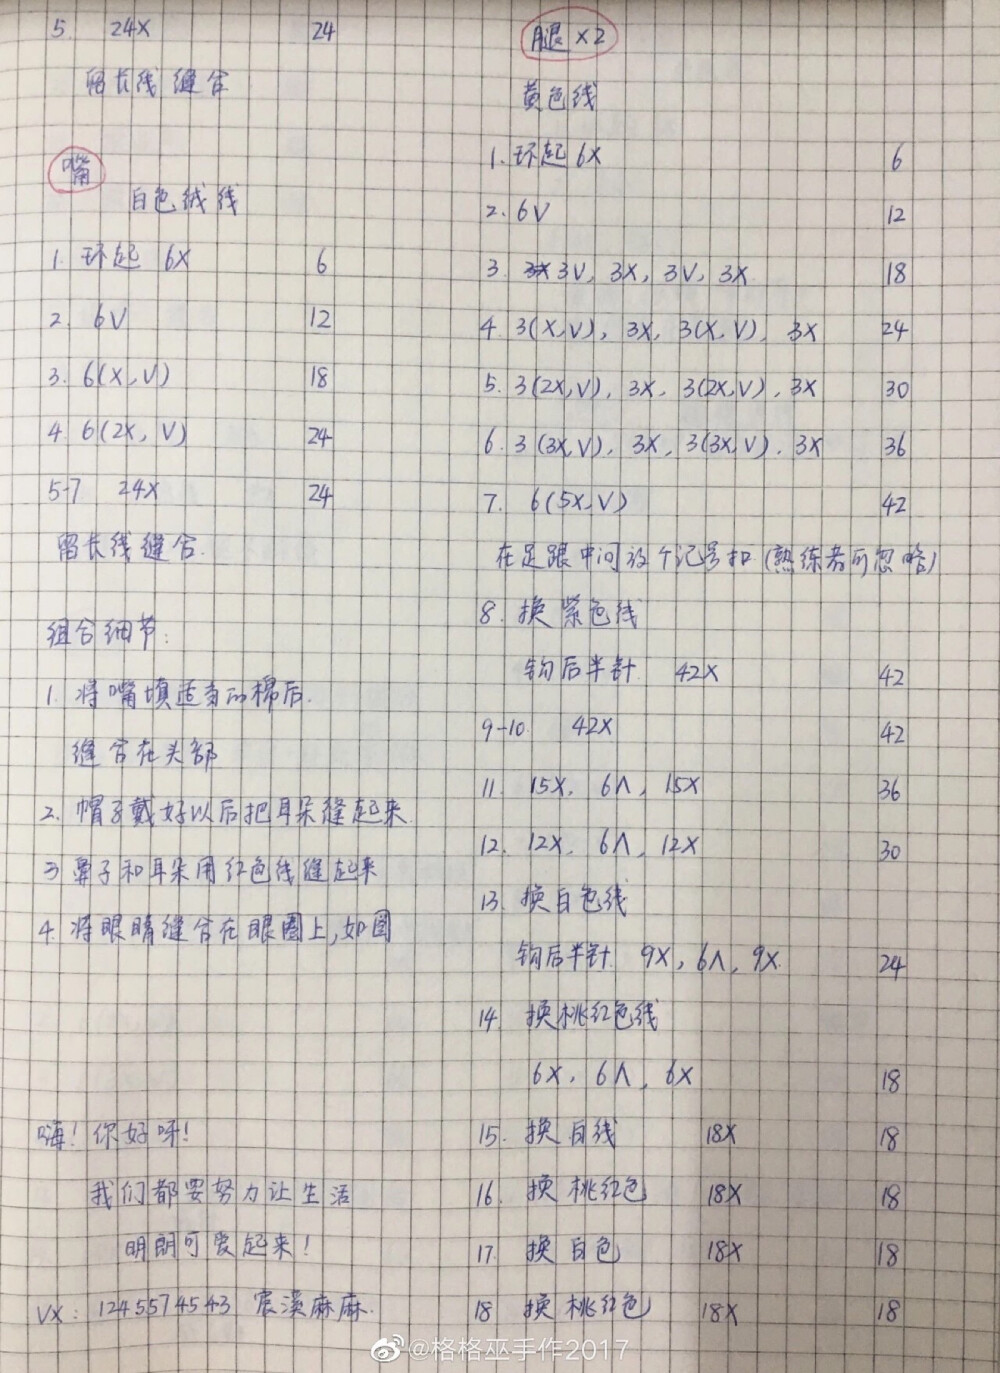 5. 24X 24
留长线缝合
嘴
白色绒线
1. 环起 6X 6
2. 6V 12
3. 6(X,V) 18
4. 6(2X,V) 24
5-7 24X 24
留长线缝合.
组合细节:
1. 将嘴填适当的棉后.
缝合在头部
2. 帽子戴好以后把耳朵缝起来
3 鼻子和耳朵用红色线缝起来
4. 将眼睛缝合在眼圈上,如图
嗨! 你好呀!
我们都要努力让生活
明朗可爱起来!
VX: 1245574543 宸溪麻麻.
腿 x2
黄色线
1. 环起 6X 6
2. 6V 12
3. 3V, 3X, 3V, 3X. 18
4. 3(X,V), 3X, 3(X,V), 3X 24
5. 3(2X,V), 3X, 3(2X,V), 3X 30
6. 3(3X,V), 3X, 3(3X,V), 3X 36
7. 6(5X,V) 42
在足跟中间放个记号扣(熟练者可忽略)
8. 换紫色线
钩后半针 42X 42
9-10 42X 42
11. 15X, 6Λ, 15X 36
12. 12X, 6Λ, 12X 30
13. 换白色线
钩后半针 9X, 6Λ, 9X. 24
14. 换桃红色线
6X, 6Λ, 6X 18
15. 换白线 18X 18
16. 换桃红色 18X 18
17. 换白色 18X 18
18 换桃红色 18X 18
@格格巫手作2017